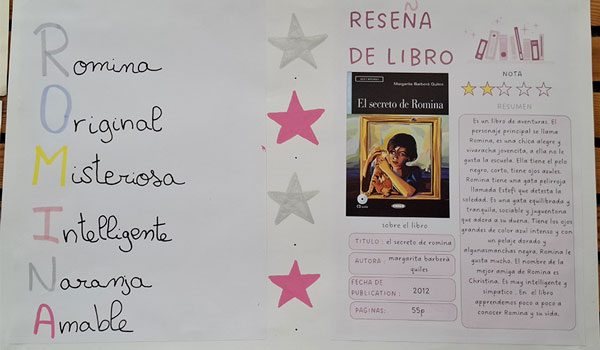 Romina
Original
Misteriosa
Intelligente
Naranja
Amable
RESEÑA
DE LIBRO
Margarita Barberá Quiles
El secreto de Romina
CD audio
sobre el libro
TITULO : el secreto de romina
AUTORA : margarita barberà
quiles
FECHA DE
PUBLICATION : 2012
PAGINAS: 55p
NOTA
RESUMEN
Es un libro de aventuras. El
personaje principal se llama
Romina, es una chica alegre y
vivaracha jovencita, a ella no le
gusta la escuela. Ella tiene el pelo
negro, corto, tiene ojos azules.
Romina tiene una gata pelirroja
llamada Estefi que detesta la
soledad. Es una gata equilibrada y
tranquila, sociable y juguentona
que adora a su duena. Tiene los ojos
grandes de color azul intenso y con
un pelaje dorado y
algunasmanchas negra. Romina le
gusta mucho. El nombre de la
mejor amiga de Romina es
Christina. Es muy intelligente y
simpatico . En el libro
apprendemos poco a poco a
conocer Romina y su vida.